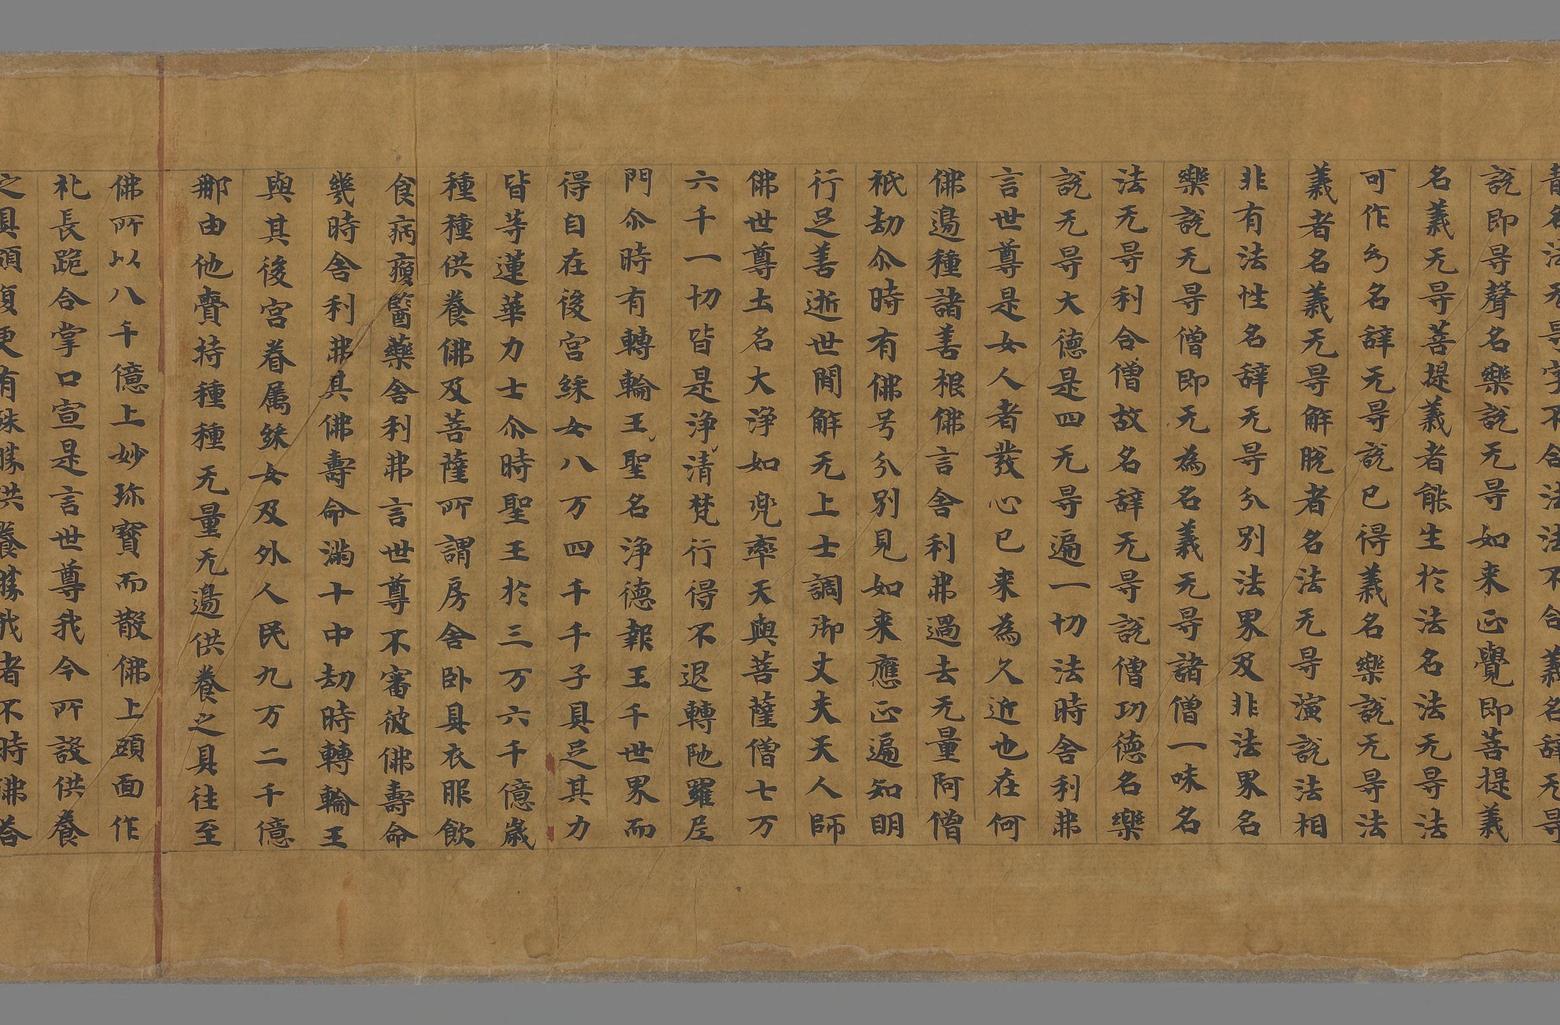 說即㝵聲名樂說无㝵如来正覺即菩提義
名義无㝵菩提義者能生於法名法无㝵法
可作名辞无㝵說已得義名樂說无㝵法
義者名義无㝵解脱者名法无㝵演說法相
非有法性名辞无㝵分別法界及非法界名
樂說无㝵僧即无為名義无㝵諸僧一味名
法无㝵利合僧故名辞无㝵說僧功德名樂
說无㝵大德是四无㝵遍一切法時舍利弗
言世尊是女人者發心已来為久近也在何
佛邊種諸善根佛言舍利弗過去无量阿僧
祇劫尒時有佛号分別見如来應正遍知明
行足善逝世間解无上士調御丈夫天人師
佛世尊土名大淨如兜率天與菩薩僧七万
六千一切皆是淨清梵行得不退轉陁羅尼
門尒時有轉輪王聖名淨德報王千世界而
得自在後宮婇女八万四千千子具足其力
皆等蓮華力士尒時聖王於三万六千億歲
種種供養佛及菩薩所謂房舍卧具衣服飲
食病瘦醫藥舍利弗言世尊不審彼佛壽命
幾時舍利弗其佛壽命滿十中劫時轉輪王
與其後宮眷屬婇女及外人民九万二千億
那由他賷持種種无量无邊供養之具往至
佛所以八千億上妙珎寳而散佛上頭面作
礼長跪合掌口宣是言世尊我今所設供養